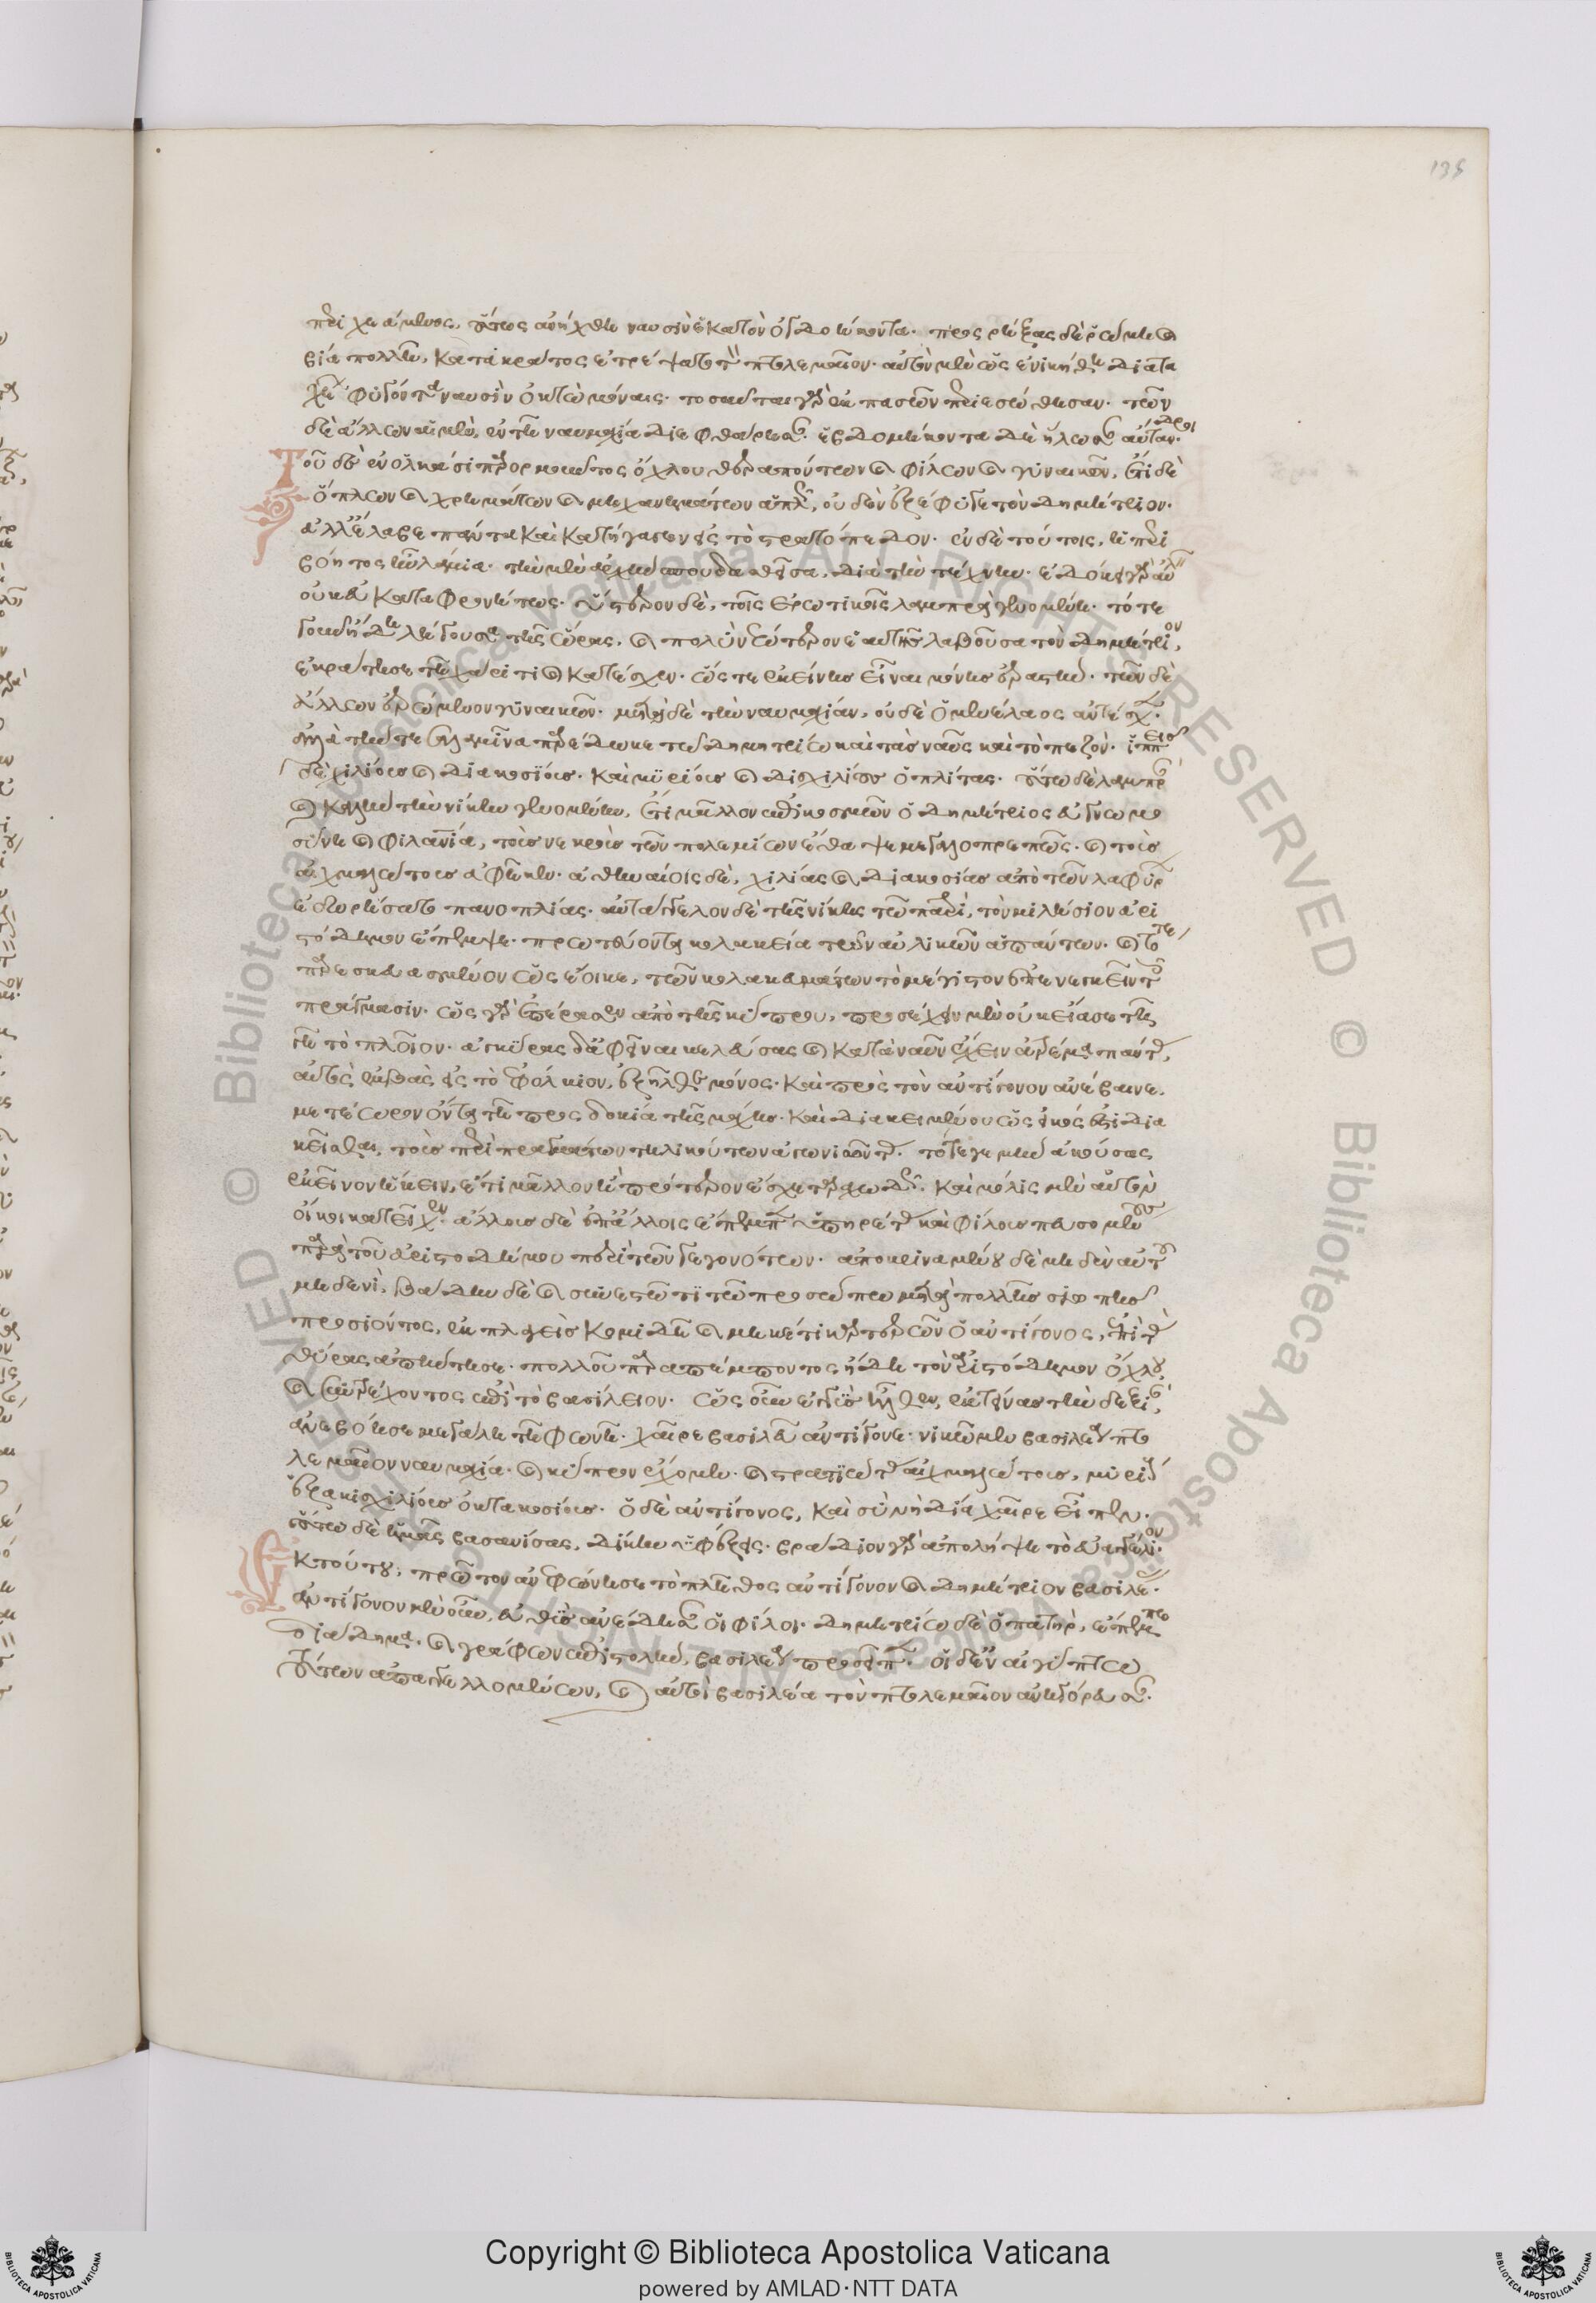 135
περιχεάμενος, οὕτως ἀνήχθη ναυσὶν ἑκατὸν ὀγδοήκοντα. προσρήξας δὲ ῥώμη καὶ
βία πολλῆ, κατὰ κράτος ἐτρέψατο τὸν πτολεμαῖον. αὐτὸν μὲν ὡς ἐνικήθη διὰ τα
χέων φυγόντα ναυσὶν ὀκτὼ μόναις. τοσαῦται γὰρ ἐκ πασῶν περιεσώθησαν. τῶν
δὲ ἄλλων αἱ μὲν, ἐν τῆ ναυμαχία διεφθάρησαν. ἑβδομήκοντα δὲ ἥλωσαν αὔτανδροι.
Τοῦ δὲ ἐν ὁλκάσι παρορμοῦντος ὄχλου θεραπόντων καὶ φίλων καὶ γυναικῶν, ἔτι δὲ
ὅπλων καὶ χρημάτων καὶ μηχανημάτων ἁπλῶς, οὐδὲν ἐξέφυγε τὸν δημήτριον.
ἀλλ' ἔλαβε πάντα καὶ κατήγαγεν εἰς τὸ στρατόπεδον. ἐν δὲ τούτοις, ἡ περι
βόητος ἦν λάμια. τὴν μὲν ἀρχὴν σπουδασθεῖσα, διὰ τὴν τέχνην. ἐδόκει γὰρ αὐλεῖν
οὐκ εὐκαταφρονήτως. ὕστερον δὲ, τοῖς ἐρωτικοῖς λαμπρὰ γενομένη. τότε
γοῦν ἤδη λήγουσα τῆς ὥρας, καὶ πολὺ νεώτερον ἑαυτῆς λαβοῦσα τὸν δημήτριον,
ἐκράτησε τῆ χάριτι καὶ κατέσχεν. ὥστε ἐκείνης εἶναι μόνης ἐραστὴν. τῶν δὲ
ἄλλων ἐρώμενον γυναικῶν. μετὰ δὲ τὴν ναυμαχίαν, οὐδὲ ὁ μενέλαος ἀντέσχεν.
ἀλλὰ τήν τε σαλαμῖνα παρέδωκε τῶ δημητρίω καὶ τὰς ναῦς καὶ τὸ πεζὸν. ἱππεῖς
δὲ χιλίους καὶ διακοσίους. καὶ μυρίους καὶ δισχιλίους ὁπλίτας. οὕτω δὲ λαμπρὰν
καὶ καλὴν τὴν νίκην γενομένην, ἔτι μᾶλλον ἐπικοσμῶν ὁ δημήτριος εὐγνωμο
σύνη καὶ φιλανθρωπία, τοὺς νεκροὺς τῶν πολεμίων ἔθαψε μεγαλοπρεπῶς. καὶ τοὺς
αἰχμαλώτους ἀφῆκεν. ἀθηναίοις δὲ, χιλίας καὶ διακοσίας ἀπὸ τῶν λαφύρων
ἐδωρήσατο πανοπλίας. αὐτάγγελον δὲ τῆς νίκης τῶ πατρὶ, τὸν μιλήσιον ἀρι
στόδημον ἔπεμψε. πρωτεύοντα κολακεία τῶν αὐλικῶν ἁπάντων. καὶ τότε
παρεσκευασμένον ὡς ἔοικε, τῶν κολακευμάτων τὸ μέγιστον ἐπενεγκεῖν τοῖς
πράγμασιν. ὡς γὰρ ἐπέρασεν ἀπὸ τῆς κύπρου, προσέχειν μὲν οὐκ εἴασε τῆ
γῆ τὸ πλοῖον. ἀγκύρας δὲ ἀφεῖναι κελεύσας καὶ κατὰ ναῦν ἔχειν ἀτρέμα πάντας,
αὐτὸς ἐμβὰς εἰς τὸ ἐφόλκιον, ἐξῆλθε μόνος. καὶ πρὸς τὸν ἀντίγονον ἀνέβαινε.
μετέωρον ὄντα τῆ προσδοκία τῆς μάχης. καὶ διακείμενον ὡς εἰκός ἐστι δια
κεῖσθαι, τοὺς περὶ πραγμάτων τηλικούτων ἀγωνιῶντας. τότε γε μὴν ἀκούσας
ἐκεῖνον ἥκειν, ἔτι μᾶλλον ἢ πρότερον ἔσχε ταραχωδῶς. καὶ μόλις μὲν αὑτὸν
οἴκοι κατεῖχεν. ἄλλους δὲ ἐπ' ἄλλοις ἔπεμπεν ὑπηρέτας καὶ φίλους πευσομένους
παρὰ τοῦ ἀριστοδήμου περὶ τῶν γεγονότων. ἀποκριναμένου δὲ μηδὲν αὐτοῦ
μηδενὶ, βάδην δὲ καὶ συνεστῶτι τῶ προσώπω μετὰ πολλῆς σιωπῆς
προσιόντος, ἐκπλαγεὶς κομιδῆ καὶ μηκέτι καρτερῶν ὁ ἀντίγονος, ἐπὶ τὰς
θύρας ἀπήντησε. πολλοῦ παραπέμποντος ἤδη τὸν ἀριστόδημον ὄχλου,
καὶ συντρέχοντος ἐπὶ τὸ βασίλειον. ὡς οὖν ἐγγὺς ἦλθεν, ἐκτείνας τὴν δεξιὰν,
ἀνεβόησε μεγάλη τῆ φωνῆ. χαῖρε βασιλεῦ ἀντίγονε. νικῶμεν βασιλέα πτο
λεμαῖον ναυμαχία. καὶ κύπρον ἔχομεν. καὶ στρατιώτας αἰχμαλώτους, μυρίους
ἑξακισχιλίους ὀκτακοσίους. ὁ δὲ ἀντίγονος, καὶ σὺ νὴ δία χαῖρε εἶπεν.
οὕτω δὲ ἡμᾶς βασανίσας, δίκην ὑφέξεις. βράδιον γὰρ ἀπολήψη τὸ εὐαγγέλιον.
Ἐκ τούτου, πρῶτον ἀνεφώνησε τὸ πλῆθος ἀντίγονον καὶ δημήτριον βασιλέας.
ἀντίγονον μὲν οὖν, εὐθὺς ἀνέδησαν οἱ φίλοι. δημητρίω δὲ ὁ πατὴρ, ἔπεμπε
διάδημα. καὶ γράφων ἐπιστολὴν, βασιλέα προσεῖπεν. οἱ δ' ἐν αἰγύπτω
τούτων ἀπαγγελλομένων, καὶ αὐτοὶ βασιλέα τὸν πτολεμαῖον ἀνηγόρευσαν.
Copyright © Biblioteca Apostolica Vaticana
powered by AMLAD·NTT DATA